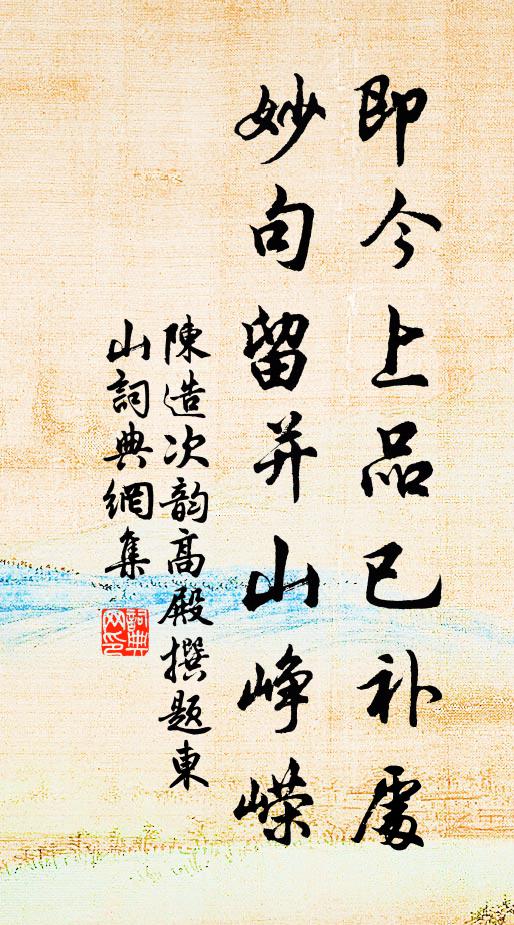 即今上品已补處
妙句留并山峥嵘
陳造次韵高殿撰題東
山詞典網集
詞典网印